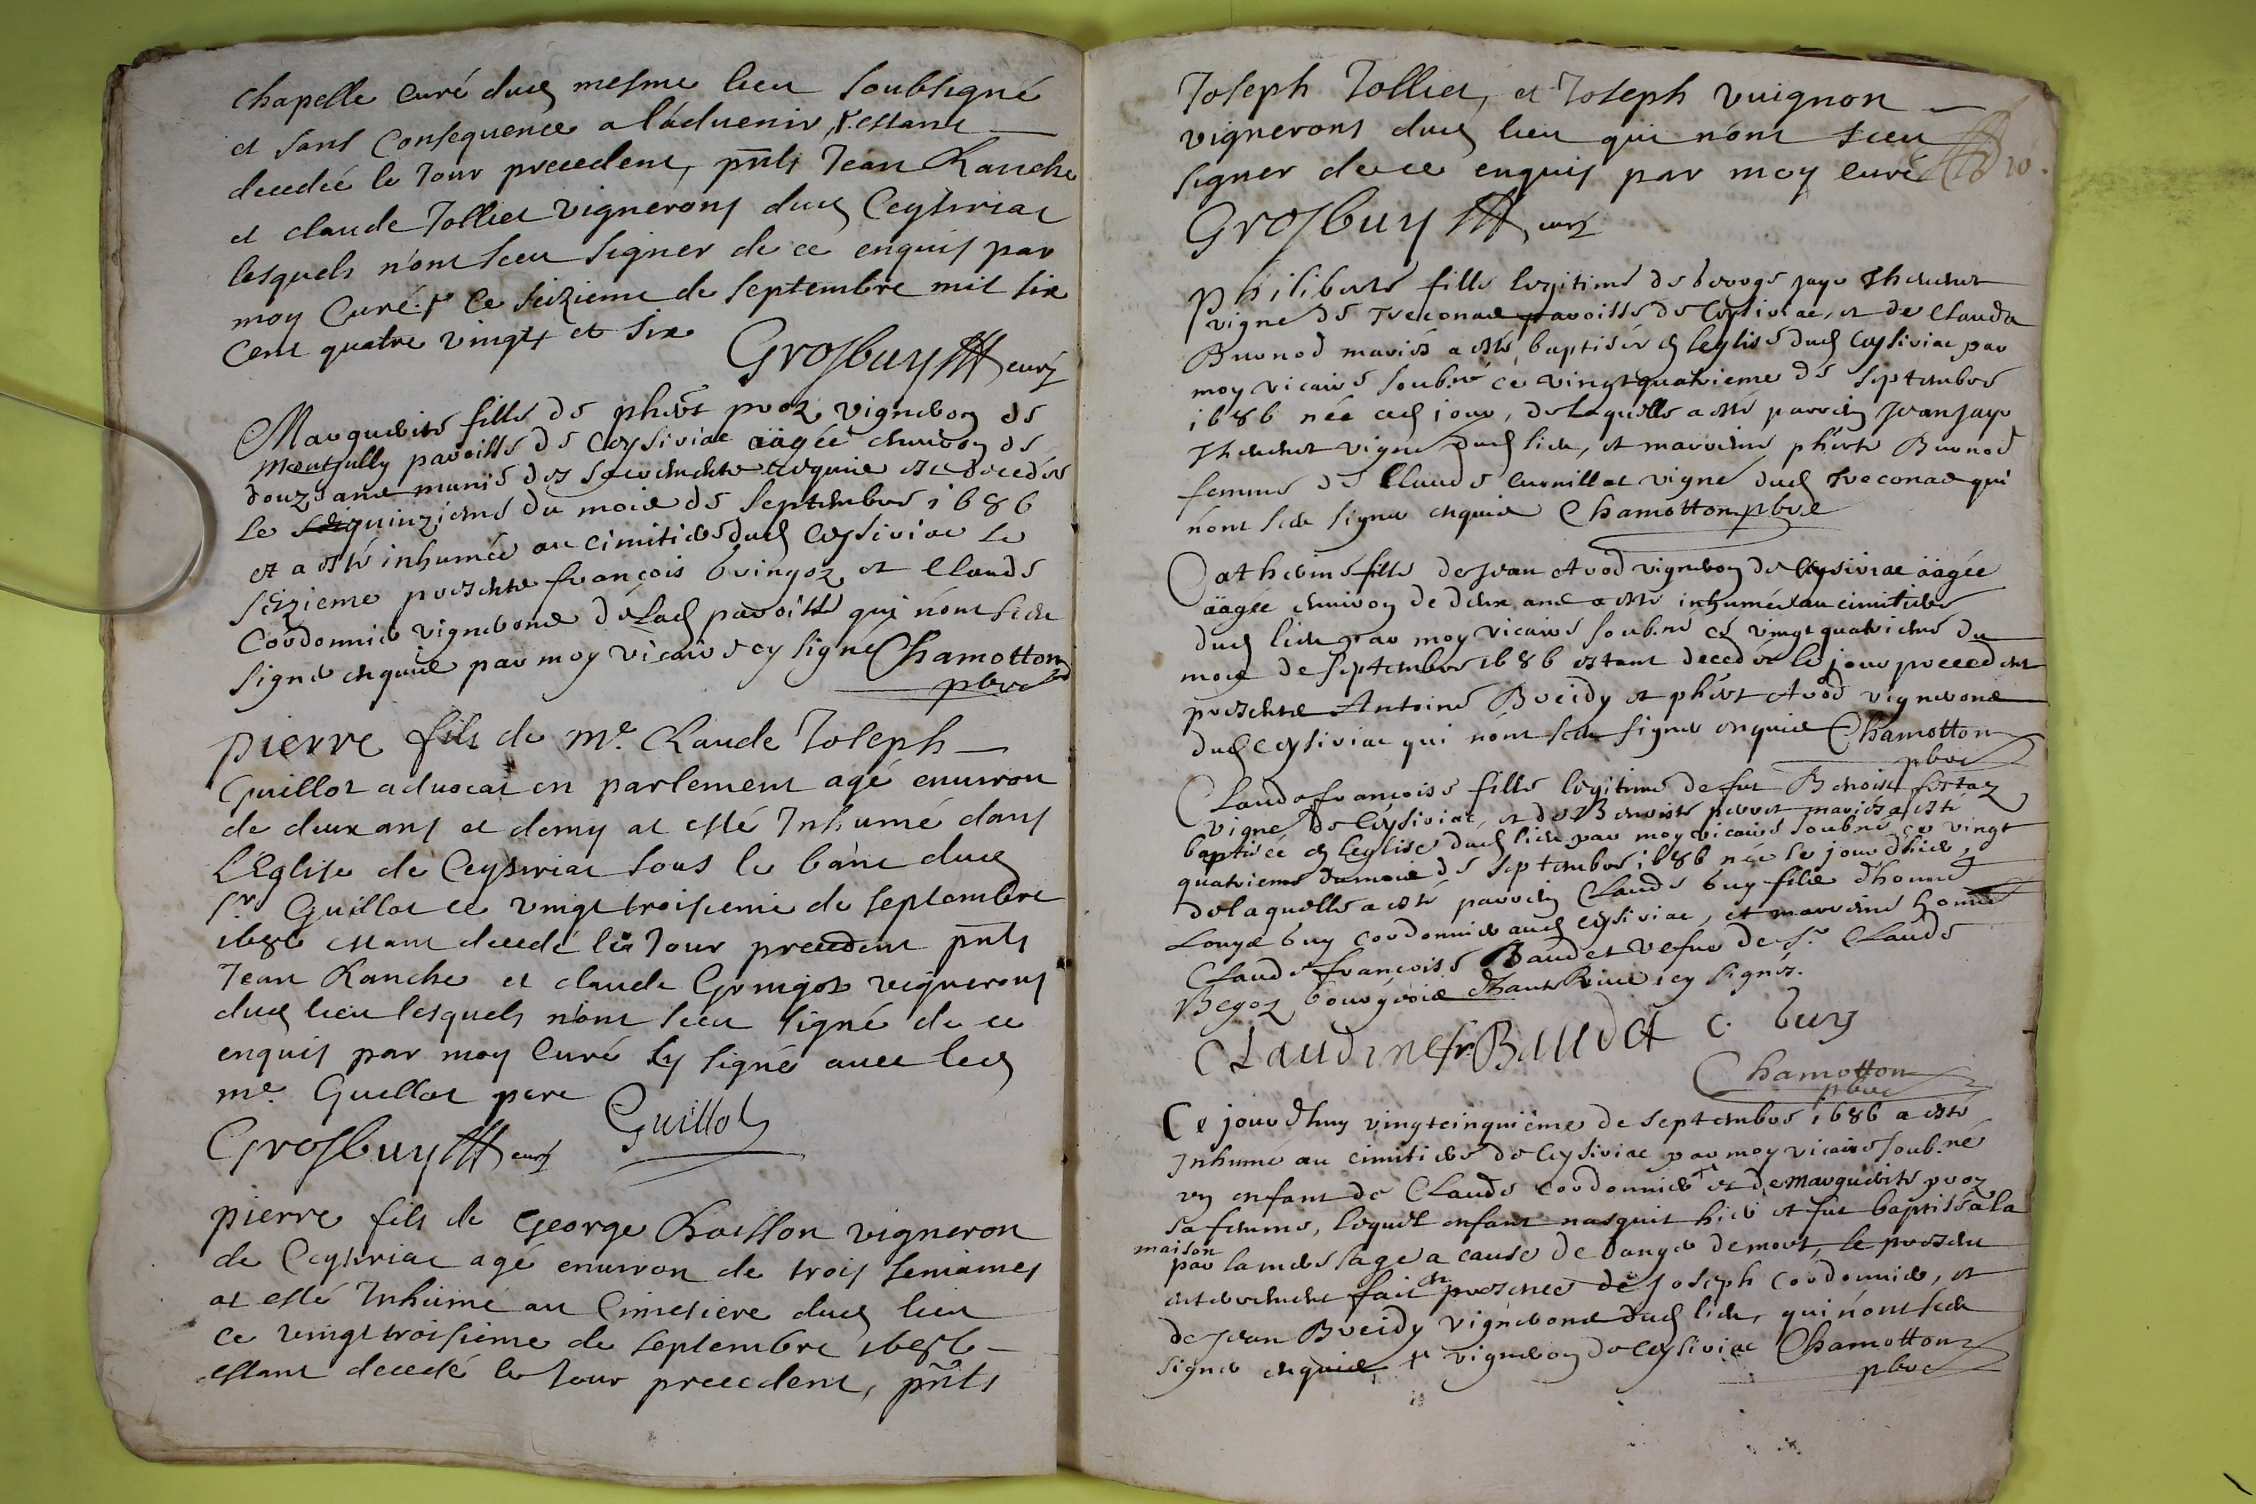 chapelle curé dud mesme lieu soubsigné
et sans consequence a l'aduenir, estant
decedée le Jour precedent, pnts Jean Ranche
et claude Tollier vignerons dud Ceyseriac
lesquels n'ont sceu signer de ce enquis par
moy Curé ce seizieme de septembre mil six
cent quatre vingts et six Grosbuy curé
Marguerite fille de phert proz vigneron de
Montjully paroisse de Ceyseriac äagée environ de
douze ans munie des sacrements requis est decedée
le quinzieme du mois de septembre 1686
et a esté inhumée au cimitiere dud Ceyseriac le
seizieme presents françois Gringoz et Claude
Cordonnier vignerons de lad paroisse qui n'ont sceu
signer enquis par moy vicaire cy signé Chamotton
pbre
pierre fils de me. Claude Joseph
Guillot aduocat en parlement agé enuiron
de deux ans et demy at esté Inhumé dans
L'Eglise de Ceyseriac sous le banc dud
sr. Guillot ce vingt troisieme de septembre
1686 estant decedé le Jour precedent pnts
Jean Ranche et claude Gringoz vignerons
dud lieu lesquels n'ont sceu signé de ce
enquis par moy Curé sy signé auec led
me. Guillot pere Guillot
Grosbuy curé
pierre fils de George vigneron
de Ceyseriac agé enuiron de trois semaines
at esté Inhumé au Cimetiere dud lieu
ce vingt troisieme de septembre 1686
estant decedé le Jour precedent, pnts
Joseph Tollier, et Joseph vuignon
vignerons dud lieu qui n'ont sceu
signer de ce enquis par moy curé
Grosbuy curé
Philiberte fille legitime de George jayr
vigne de Treconas paroisse de Ceyseriac, et de Clauda
Buronod mariés a esté baptisée en leglise dud Ceyseriac par
moy vicaire soubné ce vingtquatrieme de septembre
1686 née ced jour, de laquelle a esté parrein Jean jayr
vigne dud lieu, et marreine pherte Buronod
femme de Claude Cornillat vigne dud Treconas qui
n'ont sceu signer enquis Chamotton pbre
Catherine fille de Jean Avod vigneron de Ceyseriac äagée
äagée environ de deux ans a esté inhumée au cimitiere
dud lieu par moy vicaire soub.né ce vingt quatrieme du
mois de septembre 1686 estant decedée le jour precedent
presents Antoine Breidy et phert Avod vignerons
dud Ceyseriac qui n'ont sceu signer enquis Chamotton
pbre
Claude françoise fille legitime de feu Benoist
vigne de Ceyseriac, et de Benoiste mariés a esté
baptisée en leglise dud lieu par moy vicaire soubné ce vingt
quatrieme du mois de septembre 1686 née le jour d'hier,
de laquelle a esté parrein Claude buy fils d'honné
Louys buy cordonnier aud Ceyseriac, et marreine honnée
Claude françoise Baudet vefue de sr. Claude
Begoz bourgeois icy signés.
CLaudine fr Baudet c. buy
Chamotton
pbre
Ce jourd'huy vingtcinquiéme de septembre 1686 a esté
Inhumé au cimitiere de Ceyseriac par moy vicaire soub.né
un enfant de Claude cordonnier et de marguerite proz
sa femme, lequel enfant nasquit hier et fut baptisé a la
maison
par la mere sage a cause de danger de mort, le present
enterrement fait en presence de Joseph Cordonnier, et
de Jean Breidy vignerons dud lieu, qui n'ont sceu
signer enquis vigneron de Ceyseriac Chamotton
pbre